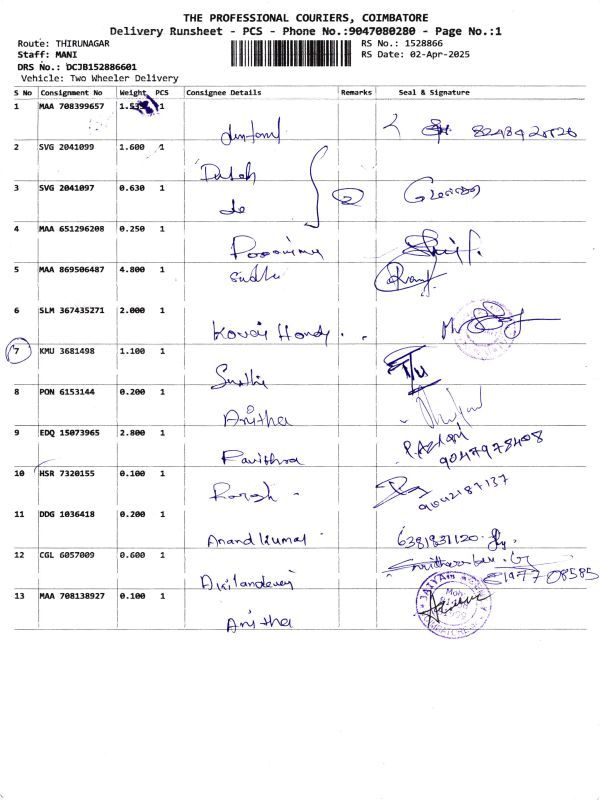 THE PROFESSIONAL COURIERS, COIMBATORE
Delivery Runsheet - PCS - Phone No.:9047080280 - Page No.:1
Route: THIRUNAGAR
RS No.: 1528866
Staff: MANI
RS Date: 02-Apr-2025
DRS No.: DCJB152886601
Vehicle: Two Wheeler Delivery
S No Consignment No Weight PCS Consignee Details Remarks Seal & Signature
1 MAA 708399657 1
2 SVG 2041099 1.600 1
3 SVG 2041097 0.630 1
do 2
4 MAA 651296208 0.250 1
5 MAA 869506487 4.800 1
Sudha
6 SLM 367435271 2.000 1
Kovai Hondy
7 KMU 3681498 1.100 1
Sruthi
8 PON 6153144 0.200 1
Anitha
9 EDQ 15073965 2.800 1
Pavithra 9047978408
10 HSR 7320155 0.100 1
9042187137
11 DDG 1036418 0.200 1
Anand Kumar 6381831120
12 CGL 6057009 0.600 1
Akilandevei
13 MAA 708138927 0.100 1
Anitha